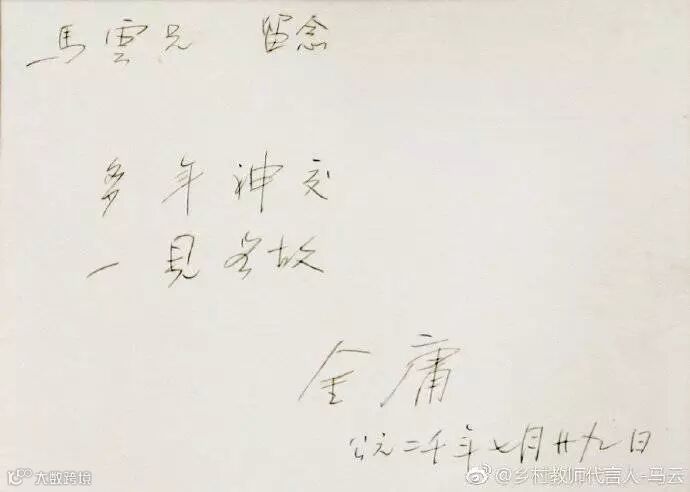 馬雲兄 留念
多年神交
一見若故
金庸
公元二千年七月廿九日
大数跨境
@乡村教师代言人-马云